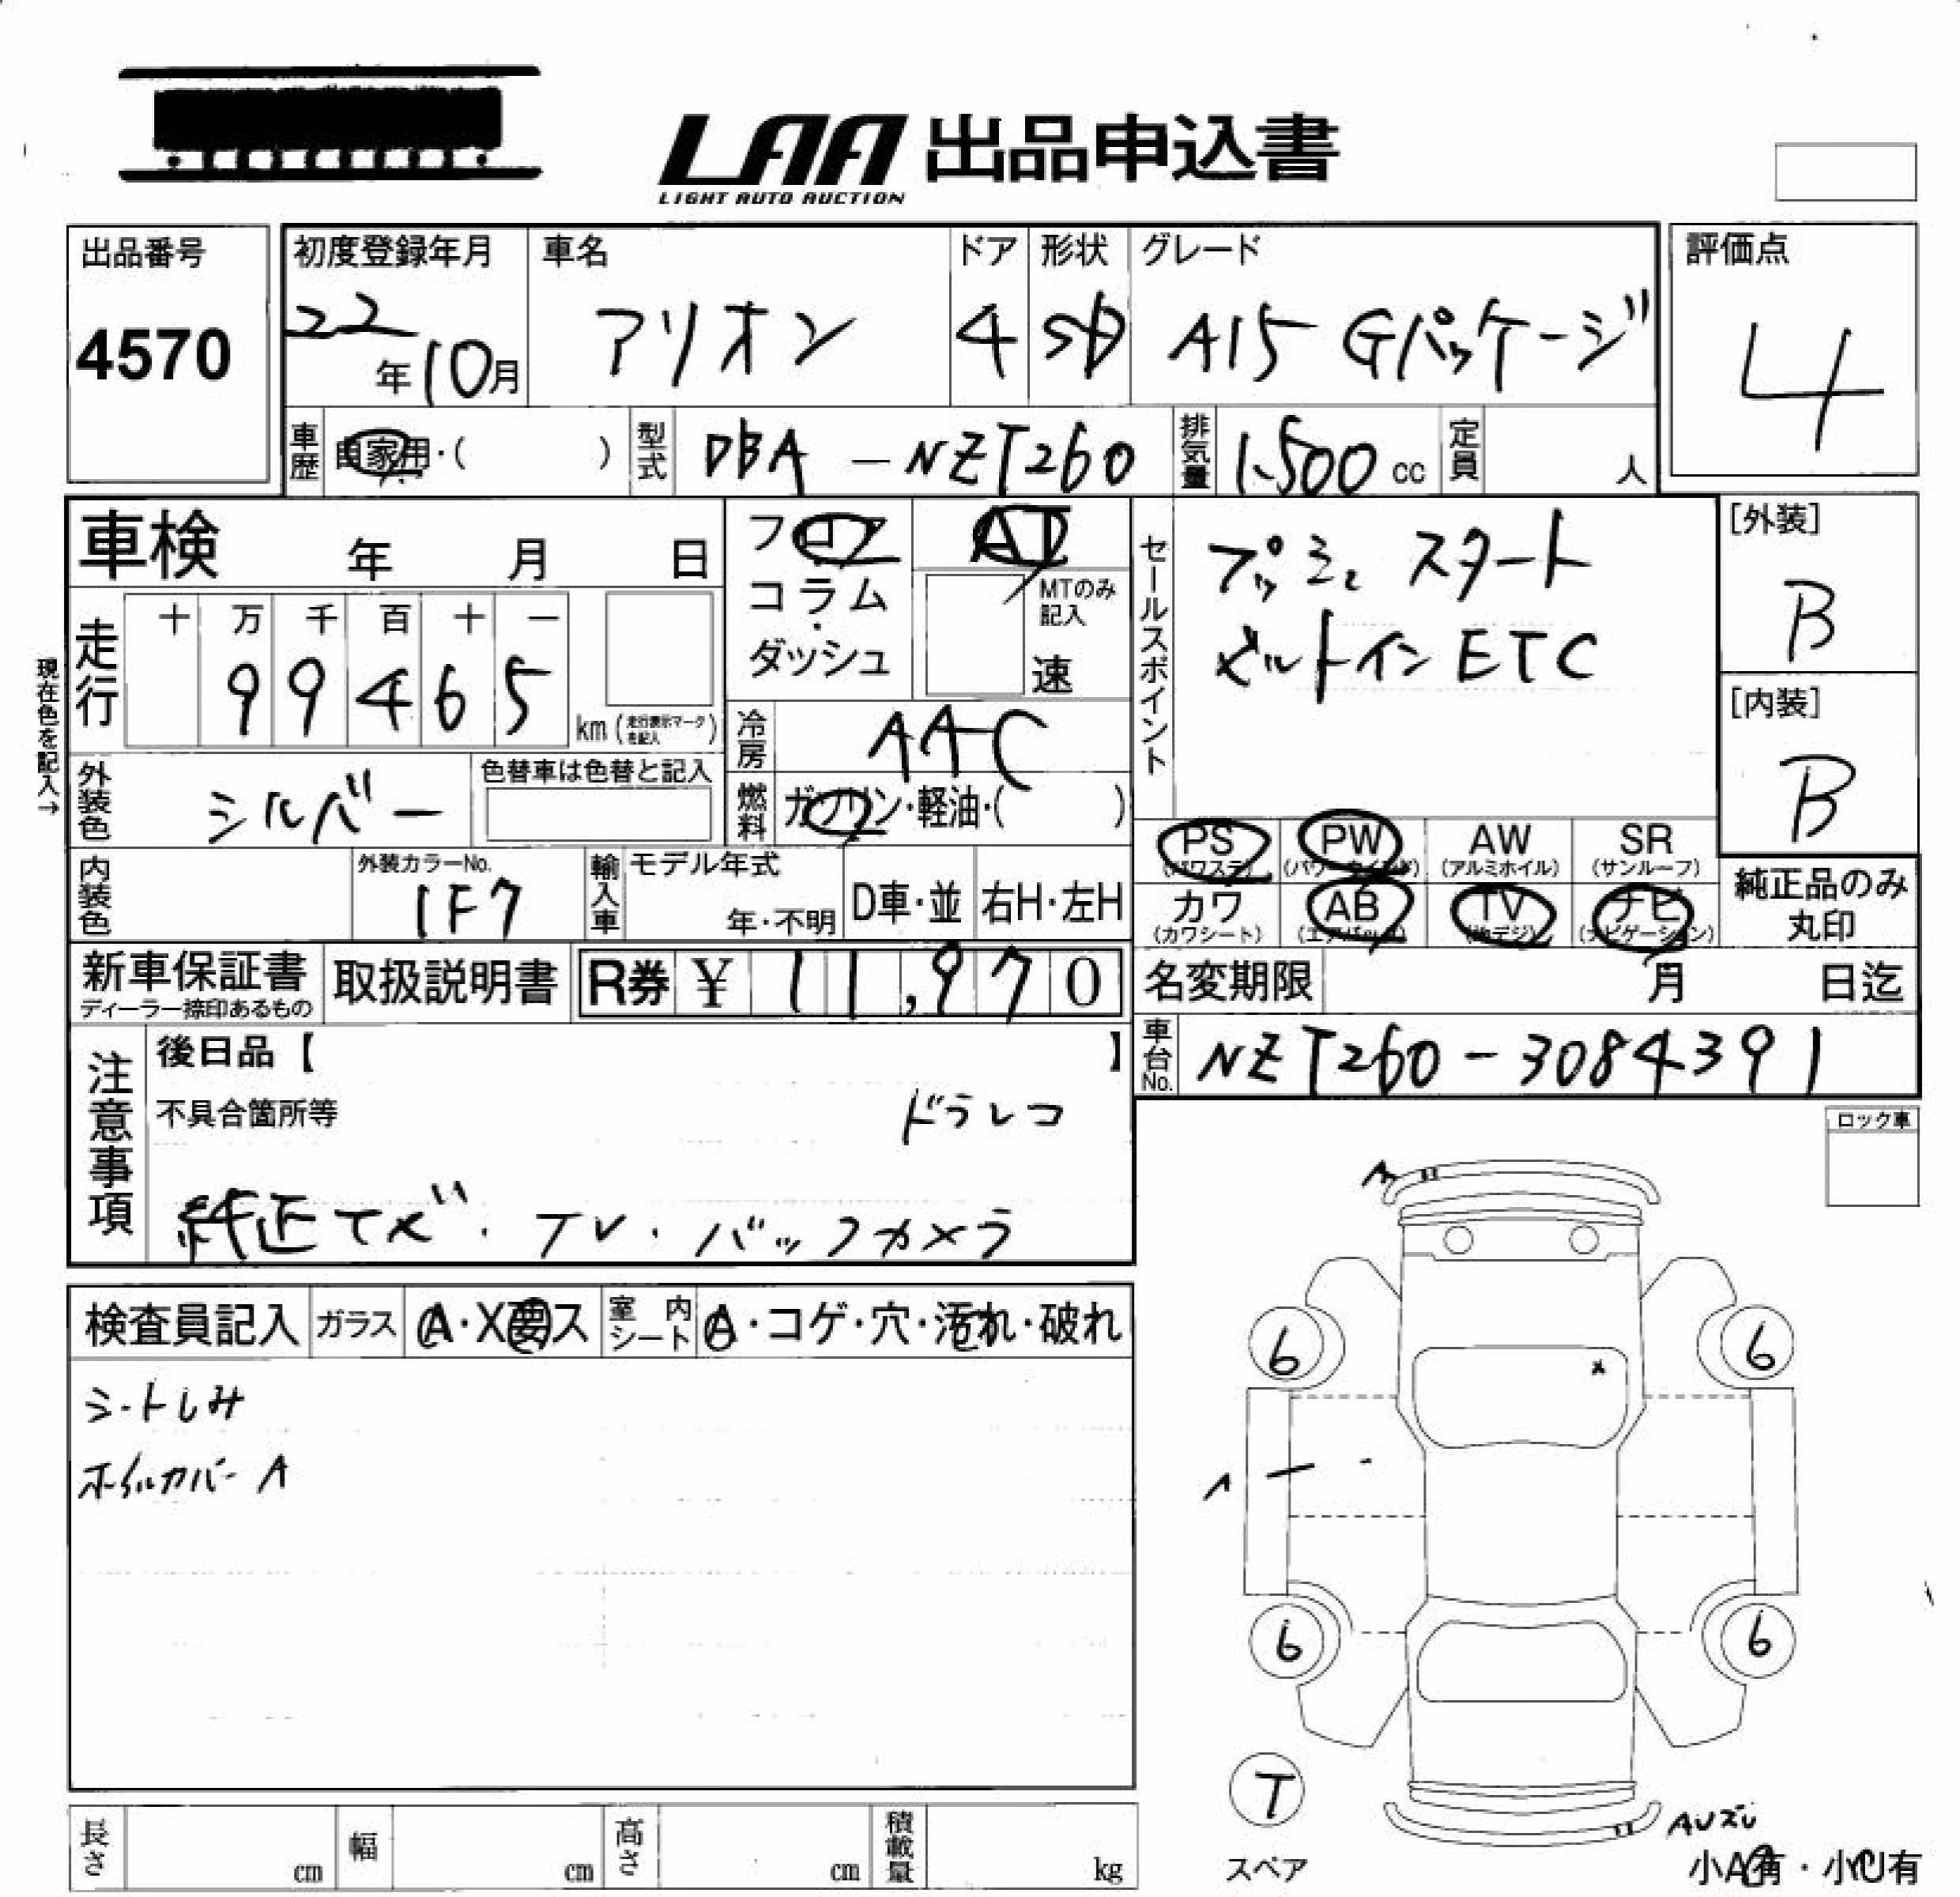 LAA 出品申込書
LIGHT AUTO AUCTION
出品番号
4570
初度登録年月
22年10月
車名
アリオン
ドア
4
形状
SD
グレード
A15 Gパッケージ
評価点
4
車歴 自家用・( )
型式 DBA-NZT260
排気量 1,500 cc
定員 人
車検 年 月 日
フロア
コラム・
ダッシュ
AT
MTのみ記入
速
セールスポイント
プッシュスタート
ビルトインETC
[外装]
B
[内装]
B
現在色を記入→
走行
十 万 千 百 十 一
9 9 4 6 5 km (走行表示マークを記入)
冷房 AAC
燃料 ガソリン・軽油・( )
外装色 シルバー
色替車は色替と記入
内装色
外装カラーNo.
1F7
輸入車
モデル年式
年・不明
D車・並
右H・左H
PS (パワステ)
PW (パワーウインド)
AW (アルミホイル)
SR (サンルーフ)
カワ (カワシート)
AB (エアバッグ)
TV (地デジ)
ナビ (ナビゲーション)
純正品のみ
丸印
新車保証書
ディーラー捺印あるもの
取扱説明書
R券 ¥ 11,970
名変期限 月 日迄
車台No. NZT260-3084391
注意事項
後日品【 】
不具合箇所等
ドラレコ
純正ナビ・TV・バックカメラ
ロック車
検査員記入
ガラス A・X要ス
室内シート A・コゲ・穴・汚れ・破れ
シートしみ
ホイルカバーA
A
6
6
x
A
6
6
T
スペア
小A有・小U有
長さ cm
幅 cm
高さ cm
積載量 kg